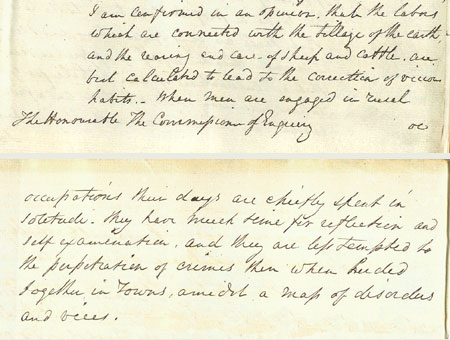 I am confirmed in an opinion, that the labors
which are connected with the tillage of the earth
and the rearing and care of sheep and cattle, are
best calculated to lead to the correction of vicious
habits. - When men are engaged in rural
The Honourable The Commissioner of Enquiry oc
occupations their days are chiefly spent in
solitude. they have much time for reflection and
self examination, and they are less tempted to
the perpetration of crimes then when herded
together in Towns, amidst a mass of disorders
and vices.